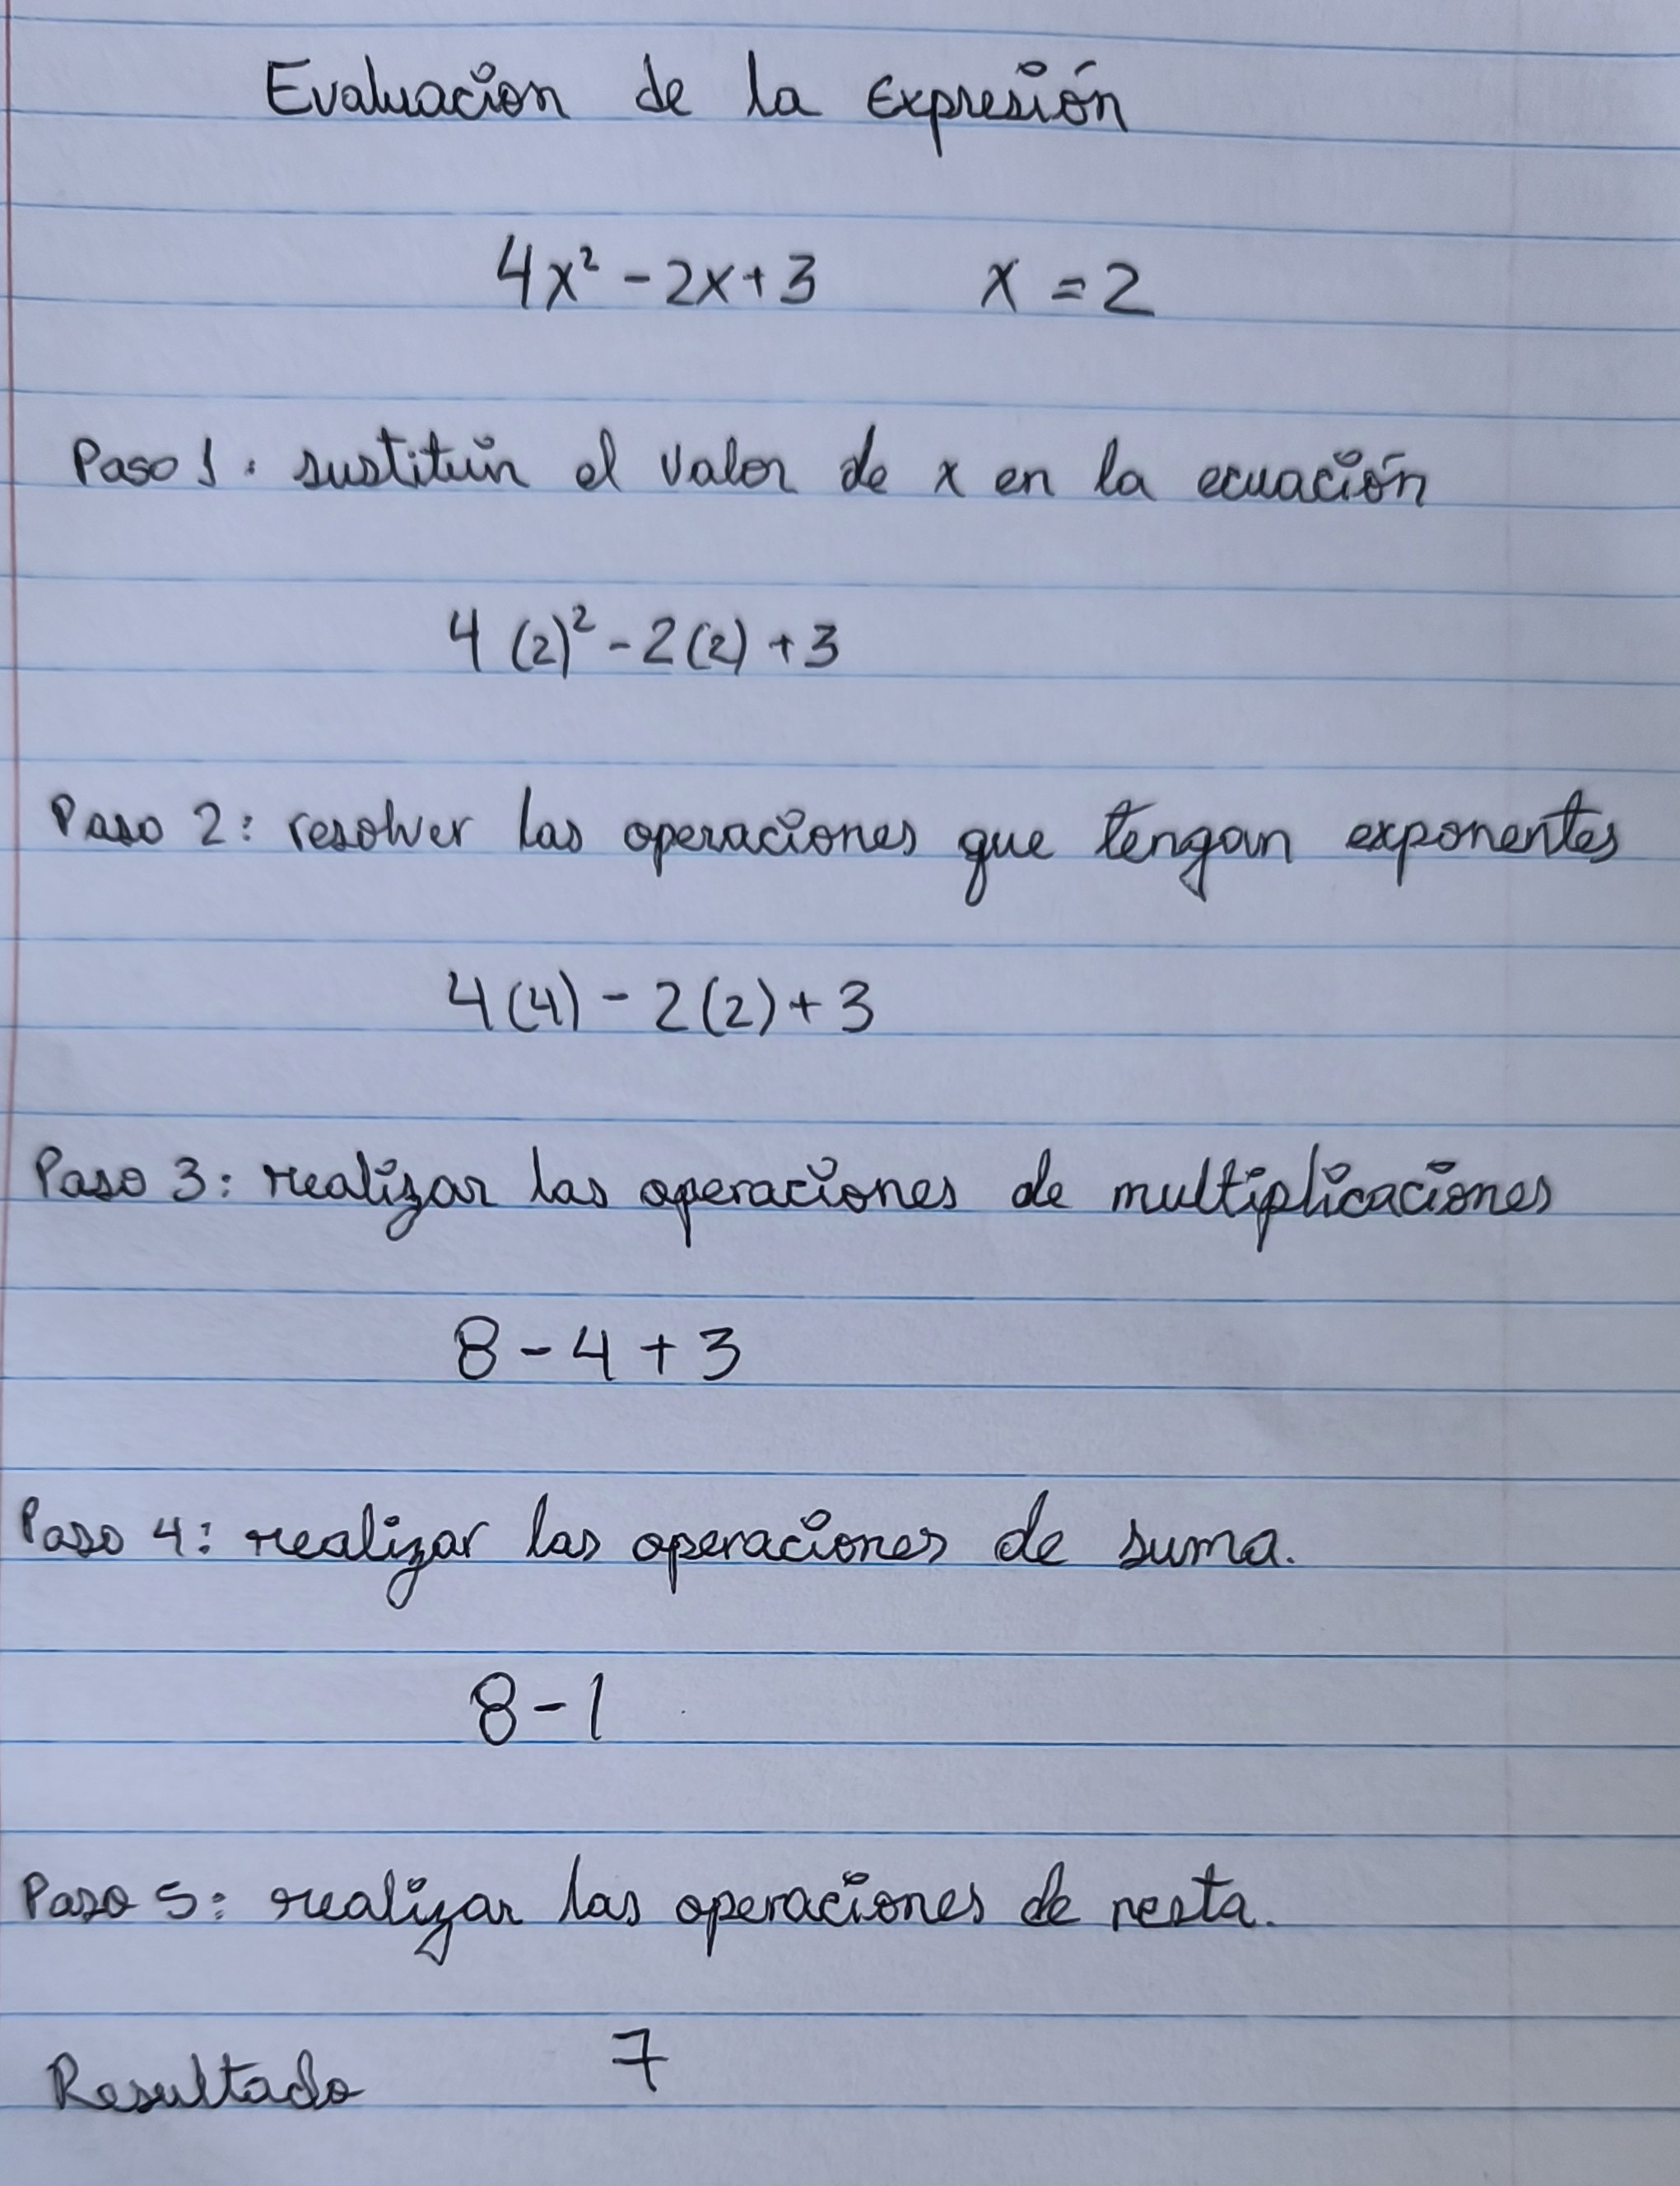 Evaluacion de la Expresión
4x² - 2x + 3 x = 2
Paso 1. sustituir el valor de x en la ecuación
4 (2)² - 2(2) + 3
Paso 2: resolver las operaciones que tengan exponentes
4(4) - 2(2) + 3
Paso 3: realizar las operaciones de multiplicaciones
8 - 4 + 3
Paso 4: realizar las operaciones de suma.
8 - 1
Paso 5: realizar las operaciones de resta.
Resultado 7